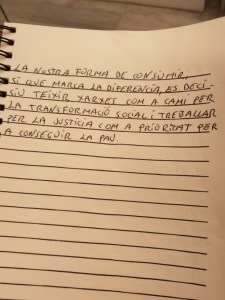 LA NOSTRA FORMA DE CONSUMIR,
SI QUE MARCA LA DIFERENCIA, ES DECI-
SIU TEIXIR XARXET COM A CAMI PER
LA TRANSFORMACIÓ SOCIAL I TREBALLAR
PER LA JUSTICIA COM A PRIORITAT PER
A CONSEGUIR LA PAU.